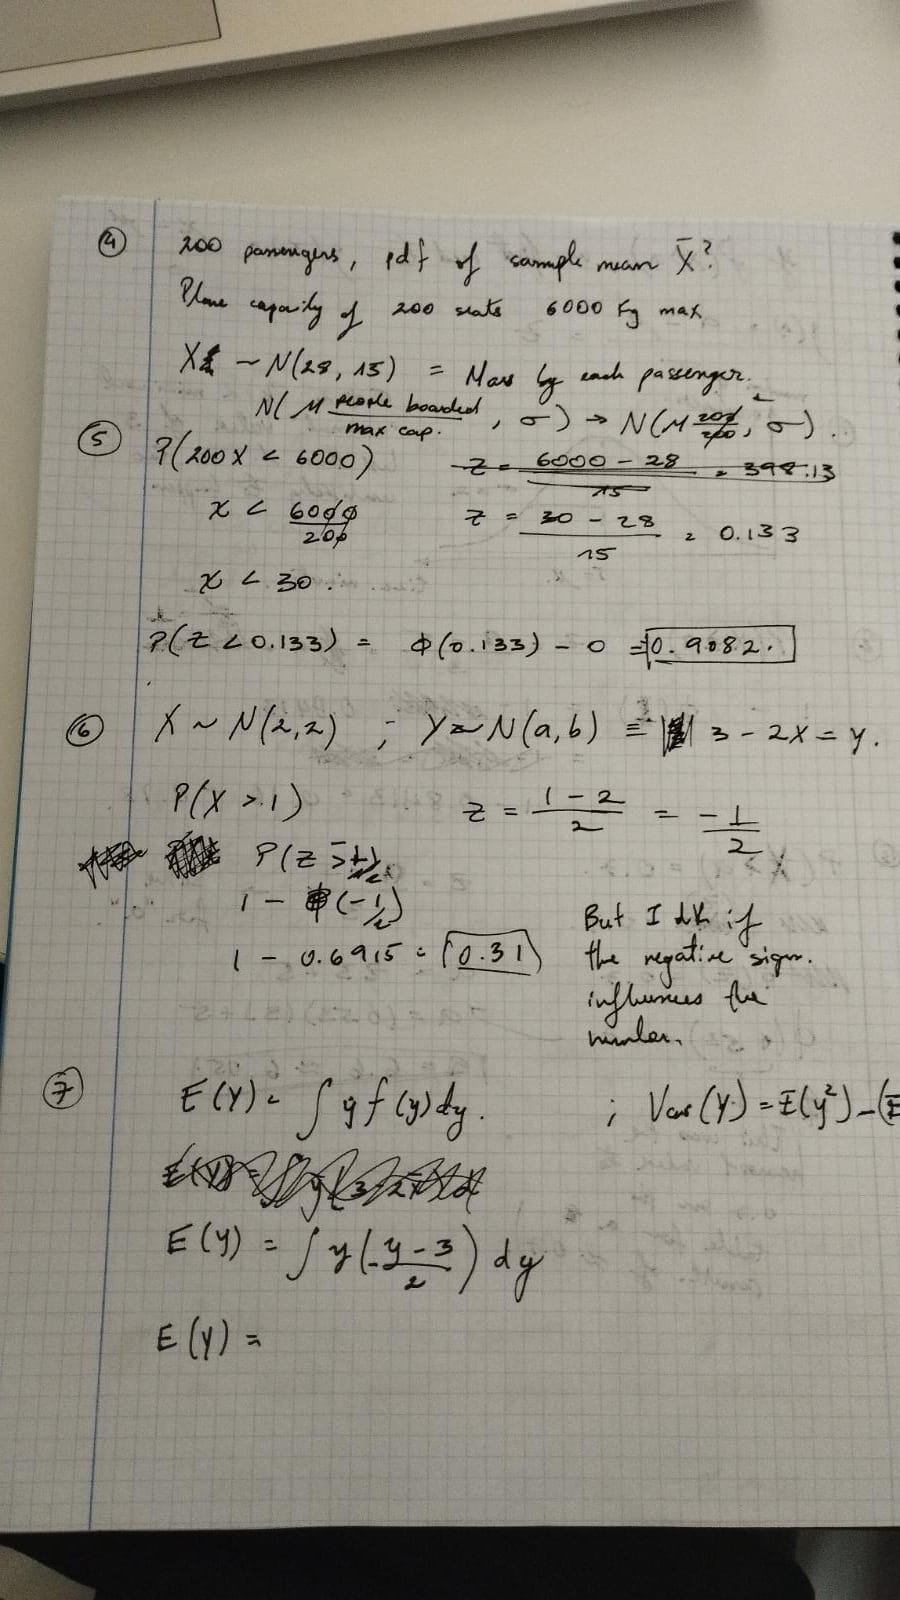 ④ 200 passengers, pdf of sample mean X̄?
Plane capacity of 200 seats 6000 Kg max
X ~ N(28, 15) = Mass by each passenger.
N(M people boarded / max cap. , σ) → N(M 200/200, σ²).
⑤ P(200X < 6000) z = 6000 - 28 / 15 = 398.13
x < 6000 / 200 z = 30 - 28 / 15 = 0.133
x < 30.
P(Z < 0.133) = Φ(0.133) - 0 = 0.9082.
⑥ X ~ N(2,2) ; Y ~ N(a,b) ≡ 3 - 2X = y.
P(X > 1) z = 1 - 2 / 2 = -1 / 2
P(Z > -1/2)
1 - Φ(-1/2)
1 - 0.6915 = 0.31
But I dk if
the negative sign.
influences the
number.
⑦ E(Y) = ∫ y f(y) dy. ; Var(Y) = E(y²) - (E
E(y) = ∫ y (-y - 3 / 2) dy
E(y) =